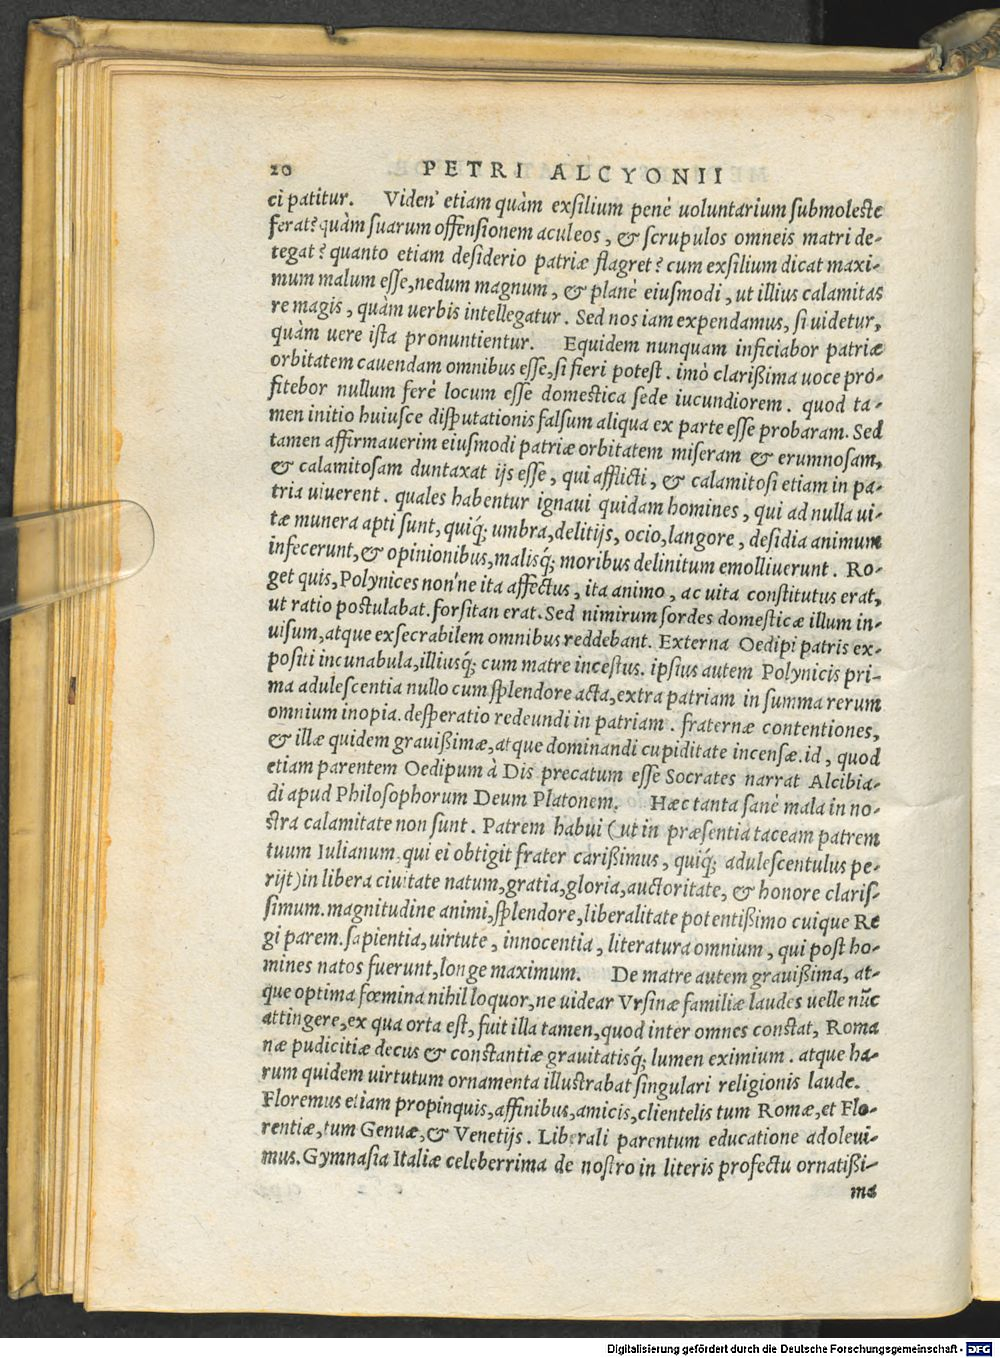 20 PETRI ALCYONII
ci patitur. Viden' etiam quàm exsilium penè uoluntarium submoleste
ferat? quàm suarum offensionem aculeos, & scrupulos omneis matri de-
tegat? quanto etiam desiderio patriæ flagret? cum exsilium dicat maxi-
mum malum esse, nedum magnum, & planè eiusmodi, ut illius calamitas
re magis, quàm uerbis intellegatur. Sed nos iam expendamus, si uidetur,
quàm uere ista pronuntientur. Equidem nunquam inficiabor patriæ
orbitatem cauendam omnibus esse, si fieri potest. imò clarißima uoce pro-
fitebor nullum ferè locum esse domestica sede iucundiorem. quod ta-
men initio huiusce disputationis falsum aliqua ex parte esse probaram. Sed
tamen affirmauerim eiusmodi patriæ orbitatem miseram & erumnosam,
& calamitosam duntaxat ijs esse, qui afflicti, & calamitosi etiam in pa-
tria uiuerent. quales habentur ignaui quidam homines, qui ad nulla ui-
tæ munera apti sunt, quiq́; umbra, delitijs, ocio, langore, desidia animum
infecerunt, & opinionibus, malisq́; moribus delinitum emolliuerunt. Ro-
get quis, Polynices non'ne ita affectus, ita animo, ac uita constitutus erat,
ut ratio postulabat. forsitan erat. Sed nimirum sordes domesticæ illum in-
uisum, atque exsecrabilem omnibus reddebant. Externa Oedipi patris ex-
positi incunabula, illiusq́; cum matre incestus. ipsius autem Polynicis pri-
ma adulescentia nullo cum splendore acta, extra patriam in summa rerum
omnium inopia. desperatio redeundi in patriam. fraternæ contentiones,
& illæ quidem grauißimæ, atque dominandi cupiditate incensæ. id, quod
etiam parentem Oedipum à Dis precatum esse Socrates narrat Alcibia-
di apud Philosophorum Deum Platonem. Hæc tanta sanè mala in no-
stra calamitate non sunt. Patrem habui (ut in præsentia taceam patrem
tuum Iulianum, qui ei obtigit frater carißimus, quiq́; adulescentulus pe-
rijt) in libera ciuitate natum, gratia, gloria, auctoritate, & honore claris-
simum. magnitudine animi, splendore, liberalitate potentißimo cuique Re
gi parem. sapientia, uirtute, innocentia, literatura omnium, qui post ho-
mines natos fuerunt, longe maximum. De matre autem grauißima, at-
que optima fœmina nihil loquor, ne uidear Vrsinæ familiæ laudes uelle nūc
attingere, ex qua orta est, fuit illa tamen, quod inter omnes constat, Roma
næ pudicitiæ decus & constantiæ grauitatisq́; lumen eximium. atque ha-
rum quidem uirtutum ornamenta illustrabat singulari religionis laude.
Floremus etiam propinquis, affinibus, amicis, clientelis tum Romæ, et Flo-
rentiæ, tum Genuæ, & Venetijs. Liberali parentum educatione adoleui-
mus. Gymnasia Italiæ celeberrima de nostro in literis profectu ornatißi-
ma
Digitalisierung gefördert durch die Deutsche Forschungsgemeinschaft - DFG